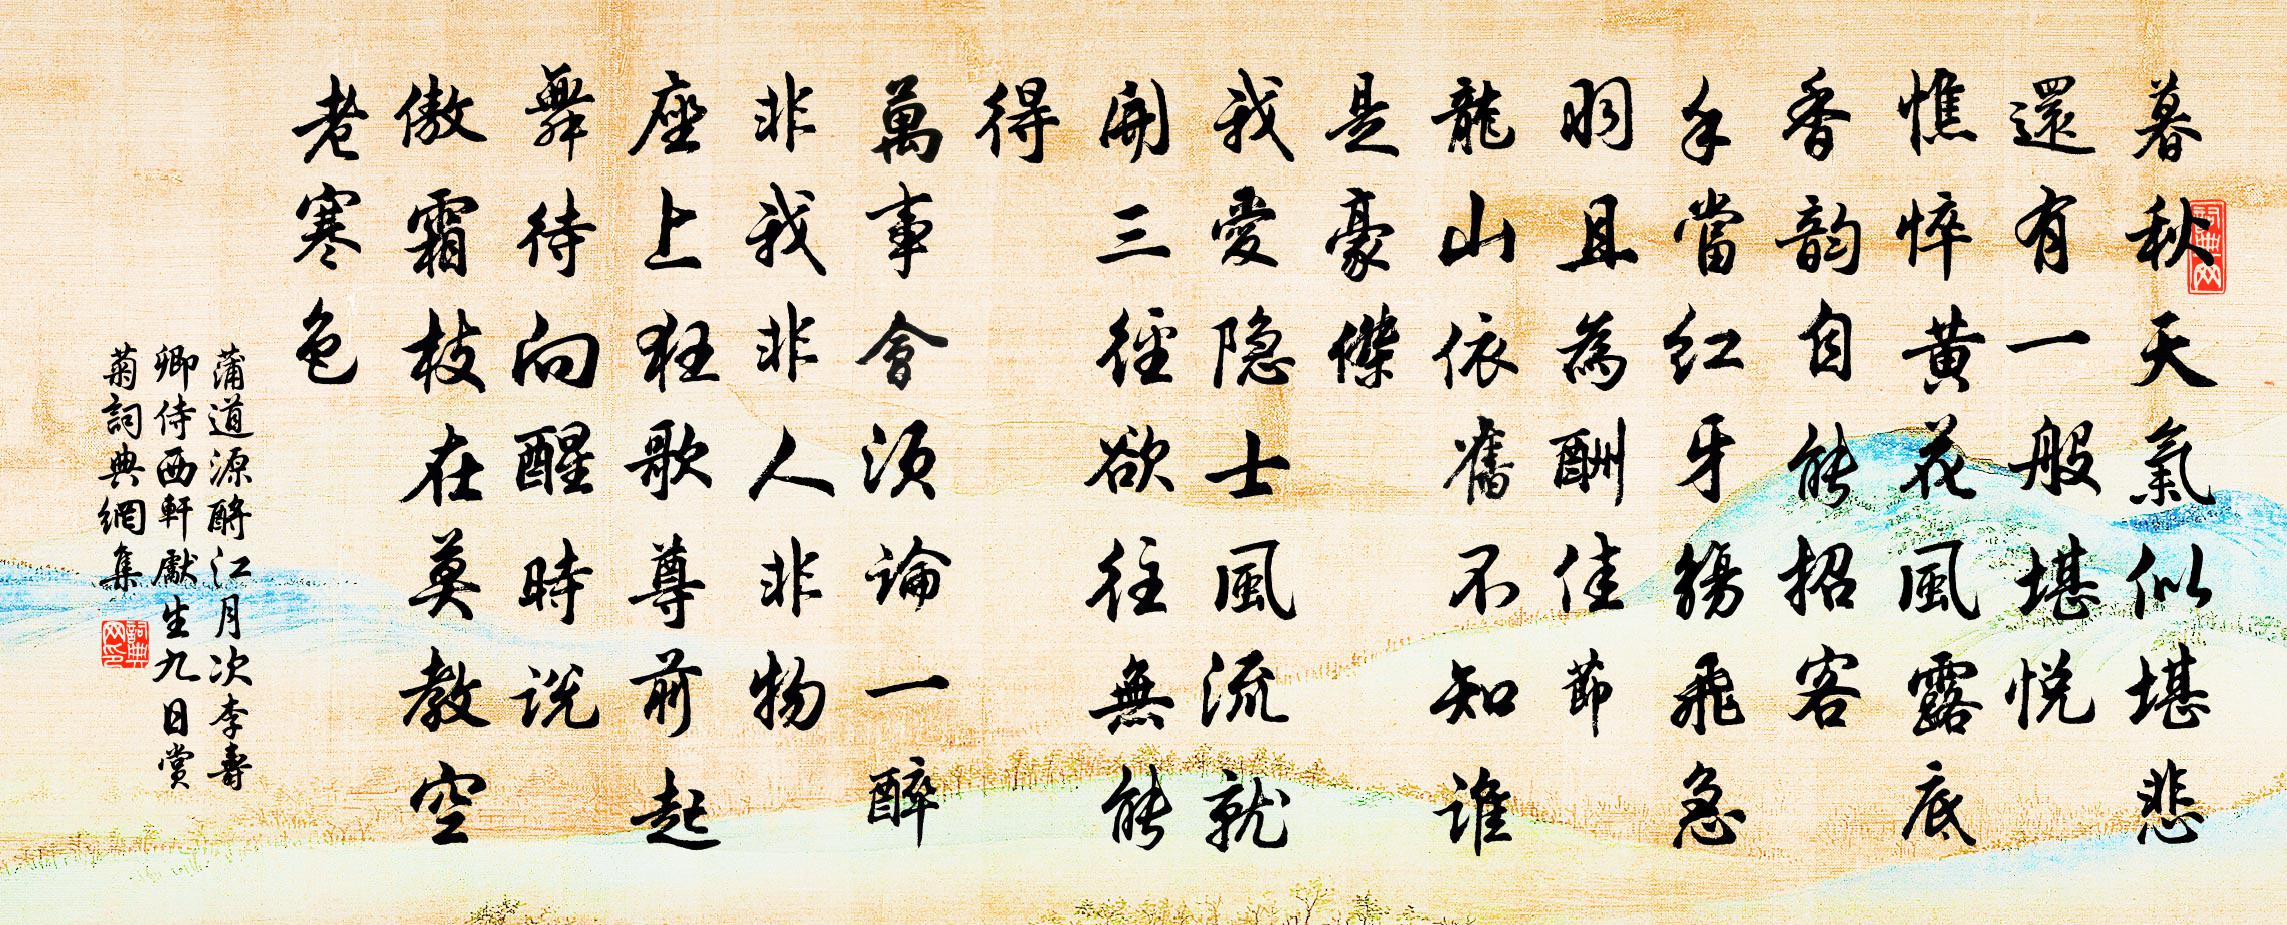 暮秋天氣似堪悲
還有一般堪悅
憔悴黃花風露底
香韵自能招客
手當红牙觴飛急
羽且為酬佳節
龍山依舊不知誰
是豪傑
我愛隐士風流就
開三徑欲往無能
得
萬事會須論一醉
非我非人非物
座上狂歌尊前起
舞待向醒時說
傲霜枝在莫教空
老寒色
蒲道源酹江月次李壽
卿侍西軒獻生九日賞
菊詞典網集
詞典网印